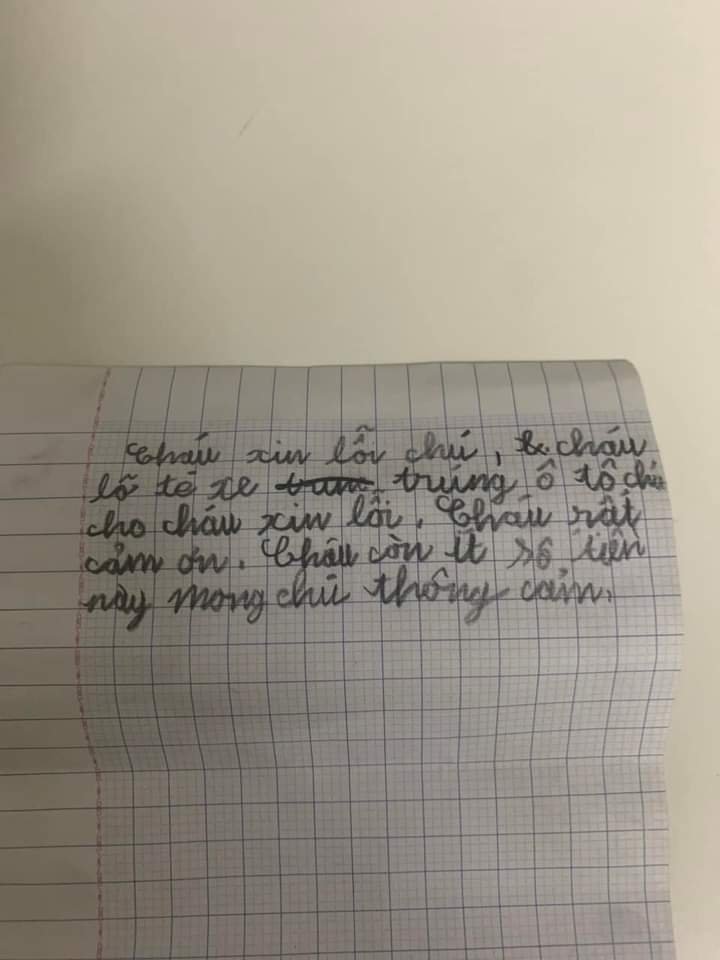 Cháu xin lỗi chú, cháu
lỡ tẻ xe trúng ô tô chú
cho cháu xin lỗi. Cháu rất
cảm ơn. Cháu còn ít số tiền
này mong chú thông cảm.